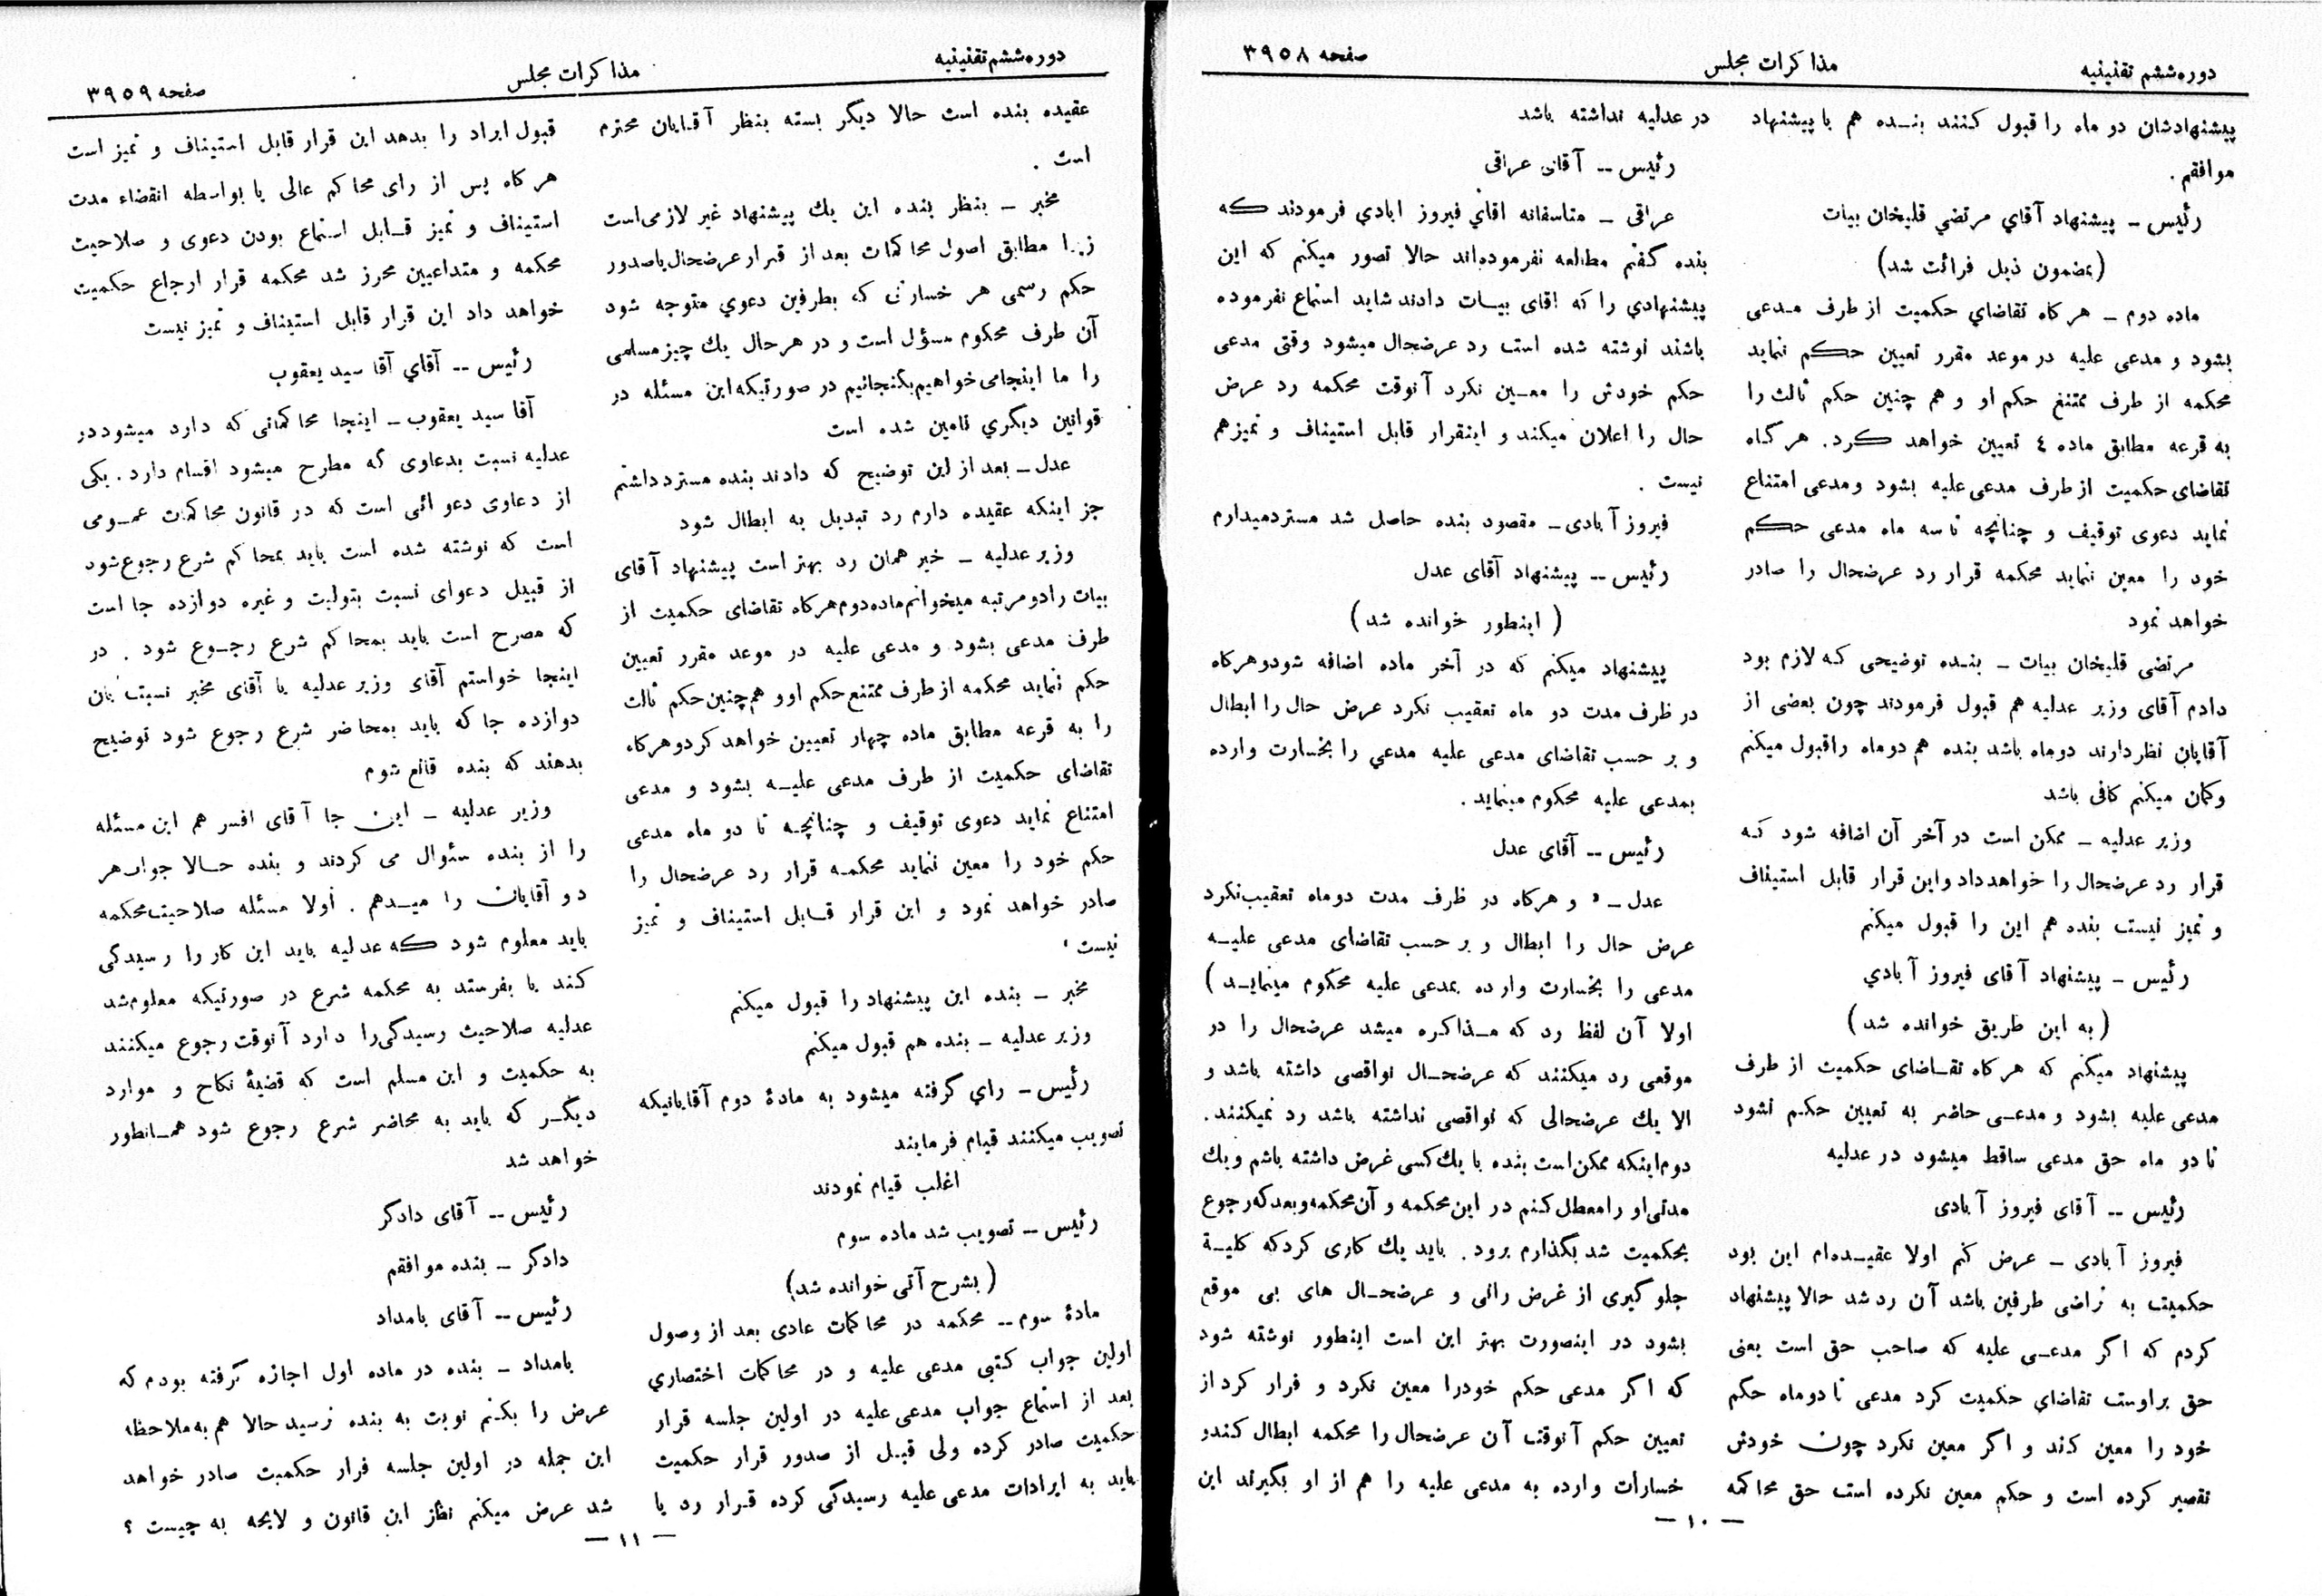 دوره ششم تقنینیه
مذاکرات مجلس
صفحه ۳۹۵۸
پیشنهادشان دو ماه را قبول کنند بنده هم با پیشنهاد
موافقم .
رئیس ــ پیشنهاد آقاي مرتضي قلیخان بیات
(بمضمون ذیل قرائت شد)
ماده دوم ــ هرکاه تقاضاي حکمیت از طرف مدعی
بشود و مدعی علیه در موعد مقرر تعیین حکم ننماید
محکمه از طرف ممتنع حکم او و هم چنین حکم ثالث را
به قرعه مطابق ماده ٤ تعیین خواهد کرد. هرگاه
تقاضای حکمیت از طرف مدعی علیه بشود ومدعی امتناع
نماید دعوی توقیف و چنانچه تا سه ماه مدعی حکم
خود را معین ننماید محکمه قرار رد عرضحال را صادر
خواهد نمود
مرتضی قلیخان بیات ــ بنده توضیحی که لازم بود
دادم آقای وزیر عدلیه هم قبول فرمودند چون بعضی از
آقایان نظر دارند دوماه باشد بنده هم دوماه راقبول میکنم
وکمان میکنم کافی باشد
وزیر عدلیه ــ ممکن است در آخر آن اضافه شود که
قرار رد عرضحال را خواهد داد واین قرار قابل استیناف
و تمیز نیست بنده هم این را قبول میکنم
رئیس ــ پیشنهاد آقای فیروز آبادي
(به این طریق خوانده شد)
پیشنهاد میکنم که هرکاه تقاضای حکمیت از طرف
مدعی علیه بشود و مدعی حاضر به تعیین حکم نشود
تا دو ماه حق مدعی ساقط میشود در عدلیه
رئیس ــ آقای فیروز آبادی
فیروز آبادی ــ عرض کنم اولا عقیده‌ام این بود
حکمیت به تراضی طرفین باشد آن رد شد حالا پیشنهاد
کردم که اگر مدعی علیه که صاحب حق است یعنی
حق براوست تقاضاي حکمیت کرد مدعی تا دوماه حکم
خود را معین کند و اگر معین نکرد چون خودش
تقصیر کرده است و حکم معین نکرده است حق محاکمه
در عدلیه نداشته باشد
رئیس ــ آقای عراقی
عراقی ــ متاسفانه اقاي فیروز ابادي فرمودند که
بنده گفتم مطالعه نفرموده‌اند حالا تصور میکنم که این
پیشنهادي را که اقای بیات دادند شاید استماع نفرموده
باشند نوشته شده است رد عرضحال میشود وقتی مدعی
حکم خودش را معین نکرد آنوقت محکمه رد عرض
حال را اعلان میکند و اینقرار قابل استیناف و تمیزهم
نیست .
فیروز آبادی ــ مقصود بنده حاصل شد مسترد میدارم
رئیس ــ پیشنهاد آقای عدل
(اینطور خوانده شد)
پیشنهاد میکنم که در آخر ماده اضافه شود و هرکاه
در ظرف مدت دو ماه تعقیب نکرد عرض حال را ابطال
و بر حسب تقاضای مدعی علیه مدعی را بخسارت وارده
بمدعی علیه محکوم مینماید .
رئیس ــ آقای عدل
عدل ــ « و هرکاه در ظرف مدت دوماه تعقیب نکرد
عرض حال را ابطال و بر حسب تقاضای مدعی علیه
مدعی را بخسارت وارده بمدعی علیه محکوم مینماید)
اولا آن لفظ رد که مذاکره میشد عرضحال را در
موقعی رد میکنند که عرضحال نواقصی داشته باشد و
الا یك عرضحالی که نواقصی نداشته باشد رد نمیکنند.
دوم اینکه ممکن است بنده با یك کسی غرض داشته باشم و یك
مدتی او را معطل کنم در این محکمه و آن محکمه و بعد که رجوع
بحکمیت شد بگذارم برود. باید یك کاری کرد که کلیة
جلوگیری از غرض رانی و عرضحال های بی موقع
بشود در اینصورت بهتر این است اینطور نوشته شود
که اگر مدعی حکم خودرا معین نکرد و فرار کرد از
تعیین حکم آنوقت آن عرضحال را محکمه ابطال کند و
خسارات وارده به مدعی علیه را هم از او بگیرند این
ــ ۱۰ ــ
دوره ششم تقنینیه
مذاکرات مجلس
صفحه ۳۹۵۹
عقیده بنده است حالا دیگر بسته بنظر آقایان محترم
است .
مخبر ــ بنظر بنده این یك پیشنهاد غیر لازمی است
زیرا مطابق اصول محاکمات بعد از قرار عرضحال یا صدور
حکم رسمی هر خسارتی که بطرفین دعوي متوجه شود
آن طرف محکوم مسؤل است و در هرحال یك چیز مسلمی
را ما اینجا می خواهیم بگنجانیم در صورتیکه این مسئله در
قوانین دیگري تامین شده است
عدل ــ بعد از این توضیح که دادند بنده مسترد داشتم
جز اینکه عقیده دارم رد تبدیل به ابطال شود
وزیر عدلیه ــ خیر همان رد بهتر است پیشنهاد آقای
بیات را دو مرتبه میخوانم ماده دوم هرکاه تقاضای حکمیت از
طرف مدعی بشود و مدعی علیه در موعد مقرر تعیین
حکم ننماید محکمه از طرف ممتنع حکم او و هم چنین حکم ثالث
را به قرعه مطابق ماده چهار تعیین خواهد کرد و هرکاه
تقاضای حکمیت از طرف مدعی علیه بشود و مدعی
امتناع نماید دعوی توقیف و چنانچه تا دو ماه مدعی
حکم خود را معین ننماید محکمه قرار رد عرضحال را
صادر خواهد نمود و این قرار قابل استیناف و تمیز
نیست ،
مخبر ــ بنده این پیشنهاد را قبول میکنم
وزیر عدلیه ــ بنده هم قبول میکنم
رئیس ــ راي گرفته میشود به مادهٔ دوم آقایانیکه
تصویب میکنند قیام فرمایند
اغلب قیام نمودند
رئیس ــ تصویب شد ماده سوم
(بشرح آتی خوانده شد)
مادهٔ سوم ــ محکمه در محاکمات عادی بعد از وصول
اولین جواب کتبی مدعی علیه و در محاکمات اختصاري
بعد از استماع جواب مدعی علیه در اولین جلسه قرار
حکمیت صادر کرده ولی قبل از صدور قرار حکمیت
باید به ایرادات مدعی علیه رسیدگی کرده قرار رد یا
قبول ایراد را بدهد این قرار قابل استیناف و تمیز است
هرکاه پس از رای محاکم عالی یا بواسطه انقضاء مدت
استیناف و تمیز قابل استماع بودن دعوی و صلاحیت
محکمه و متداعیین محرز شد محکمه قرار ارجاع حکمیت
خواهد داد این قرار قابل استیناف و تمیز نیست
رئیس ــ آقاي آقا سید یعقوب
آقا سید یعقوب ــ اینجا محاکماتی که دارد میشود در
عدلیه نسبت بدعاوی که مطرح میشود اقسام دارد. یکی
از دعاوی دعوائی است که در قانون محاکمات عمومی
است که نوشته شده است باید بمحاکم شرع رجوع شود
از قبیل دعوای نسبت بتولیت و غیره دوازده جا است
که مصرح است باید بمحاکم شرع رجوع شود . در
اینجا خواستم آقای وزیر عدلیه یا آقای مخبر نسبت بان
دوازده جا که باید بمحاضر شرع رجوع شود توضیح
بدهند که بنده قانع شوم
وزیر عدلیه ــ این جا آقای افسر هم این مسئله
را از بنده سئوال می کردند و بنده حالا جواب هر
دو آقایان را میدهم . اولا مسئله صلاحیت محکمه
باید معلوم شود که عدلیه باید این کار را رسیدگی
کند یا بفرستد به محکمه شرع در صورتیکه معلوم شد
عدلیه صلاحیت رسیدگی را دارد آنوقت رجوع میکنند
به حکمیت و این مسلم است که قضیهٔ نکاح و موارد
دیگر که باید به محاضر شرع رجوع شود همانطور
خواهد شد
رئیس ــ آقای دادگر
دادگر ــ بنده موافقم
رئیس ــ آقای بامداد
بامداد ــ بنده در ماده اول اجازه گرفته بودم که
عرض را بکنم نوبت به بنده نرسید حالا هم به ملاحظه
این جمله در اولین جلسه قرار حکمیت صادر خواهد
شد عرض میکنم نظر این قانون و لایحه به چیست ؟
ــ ۱۱ ــ